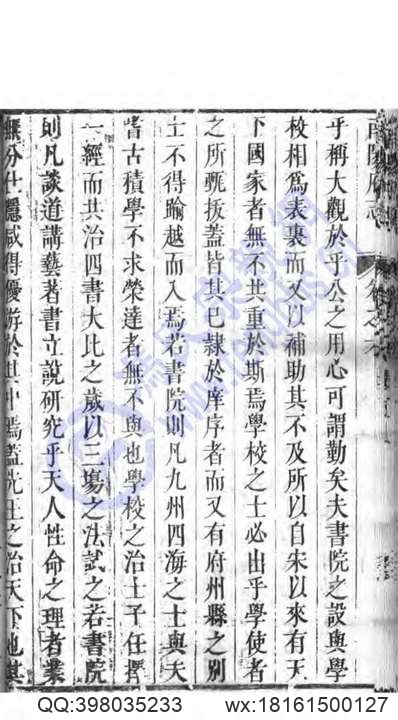 南陽府志
卷之六
乎稱大觀於乎公之用心可謂勤矣夫書院之設與學
校相爲表裏而又以補助其不及所以自宋以來有天
下國家者無不共重於斯焉學校之士必由乎學使者
之所甄拔蓋皆其已隸於庠序者而又有府州縣之別
士不得踰越而入焉若書院則凡九州四海之士與夫
耆古積學不求榮達者無不與也學校之治士子任擇
一經而共治四書大比之歲以三場之法試之若書院
則凡談道講藝著書立說研究乎天人性命之理者業
無分仕隱咸得優游於其中焉蓋先王之治天下也其
QQ:398035233 wx:18161500127